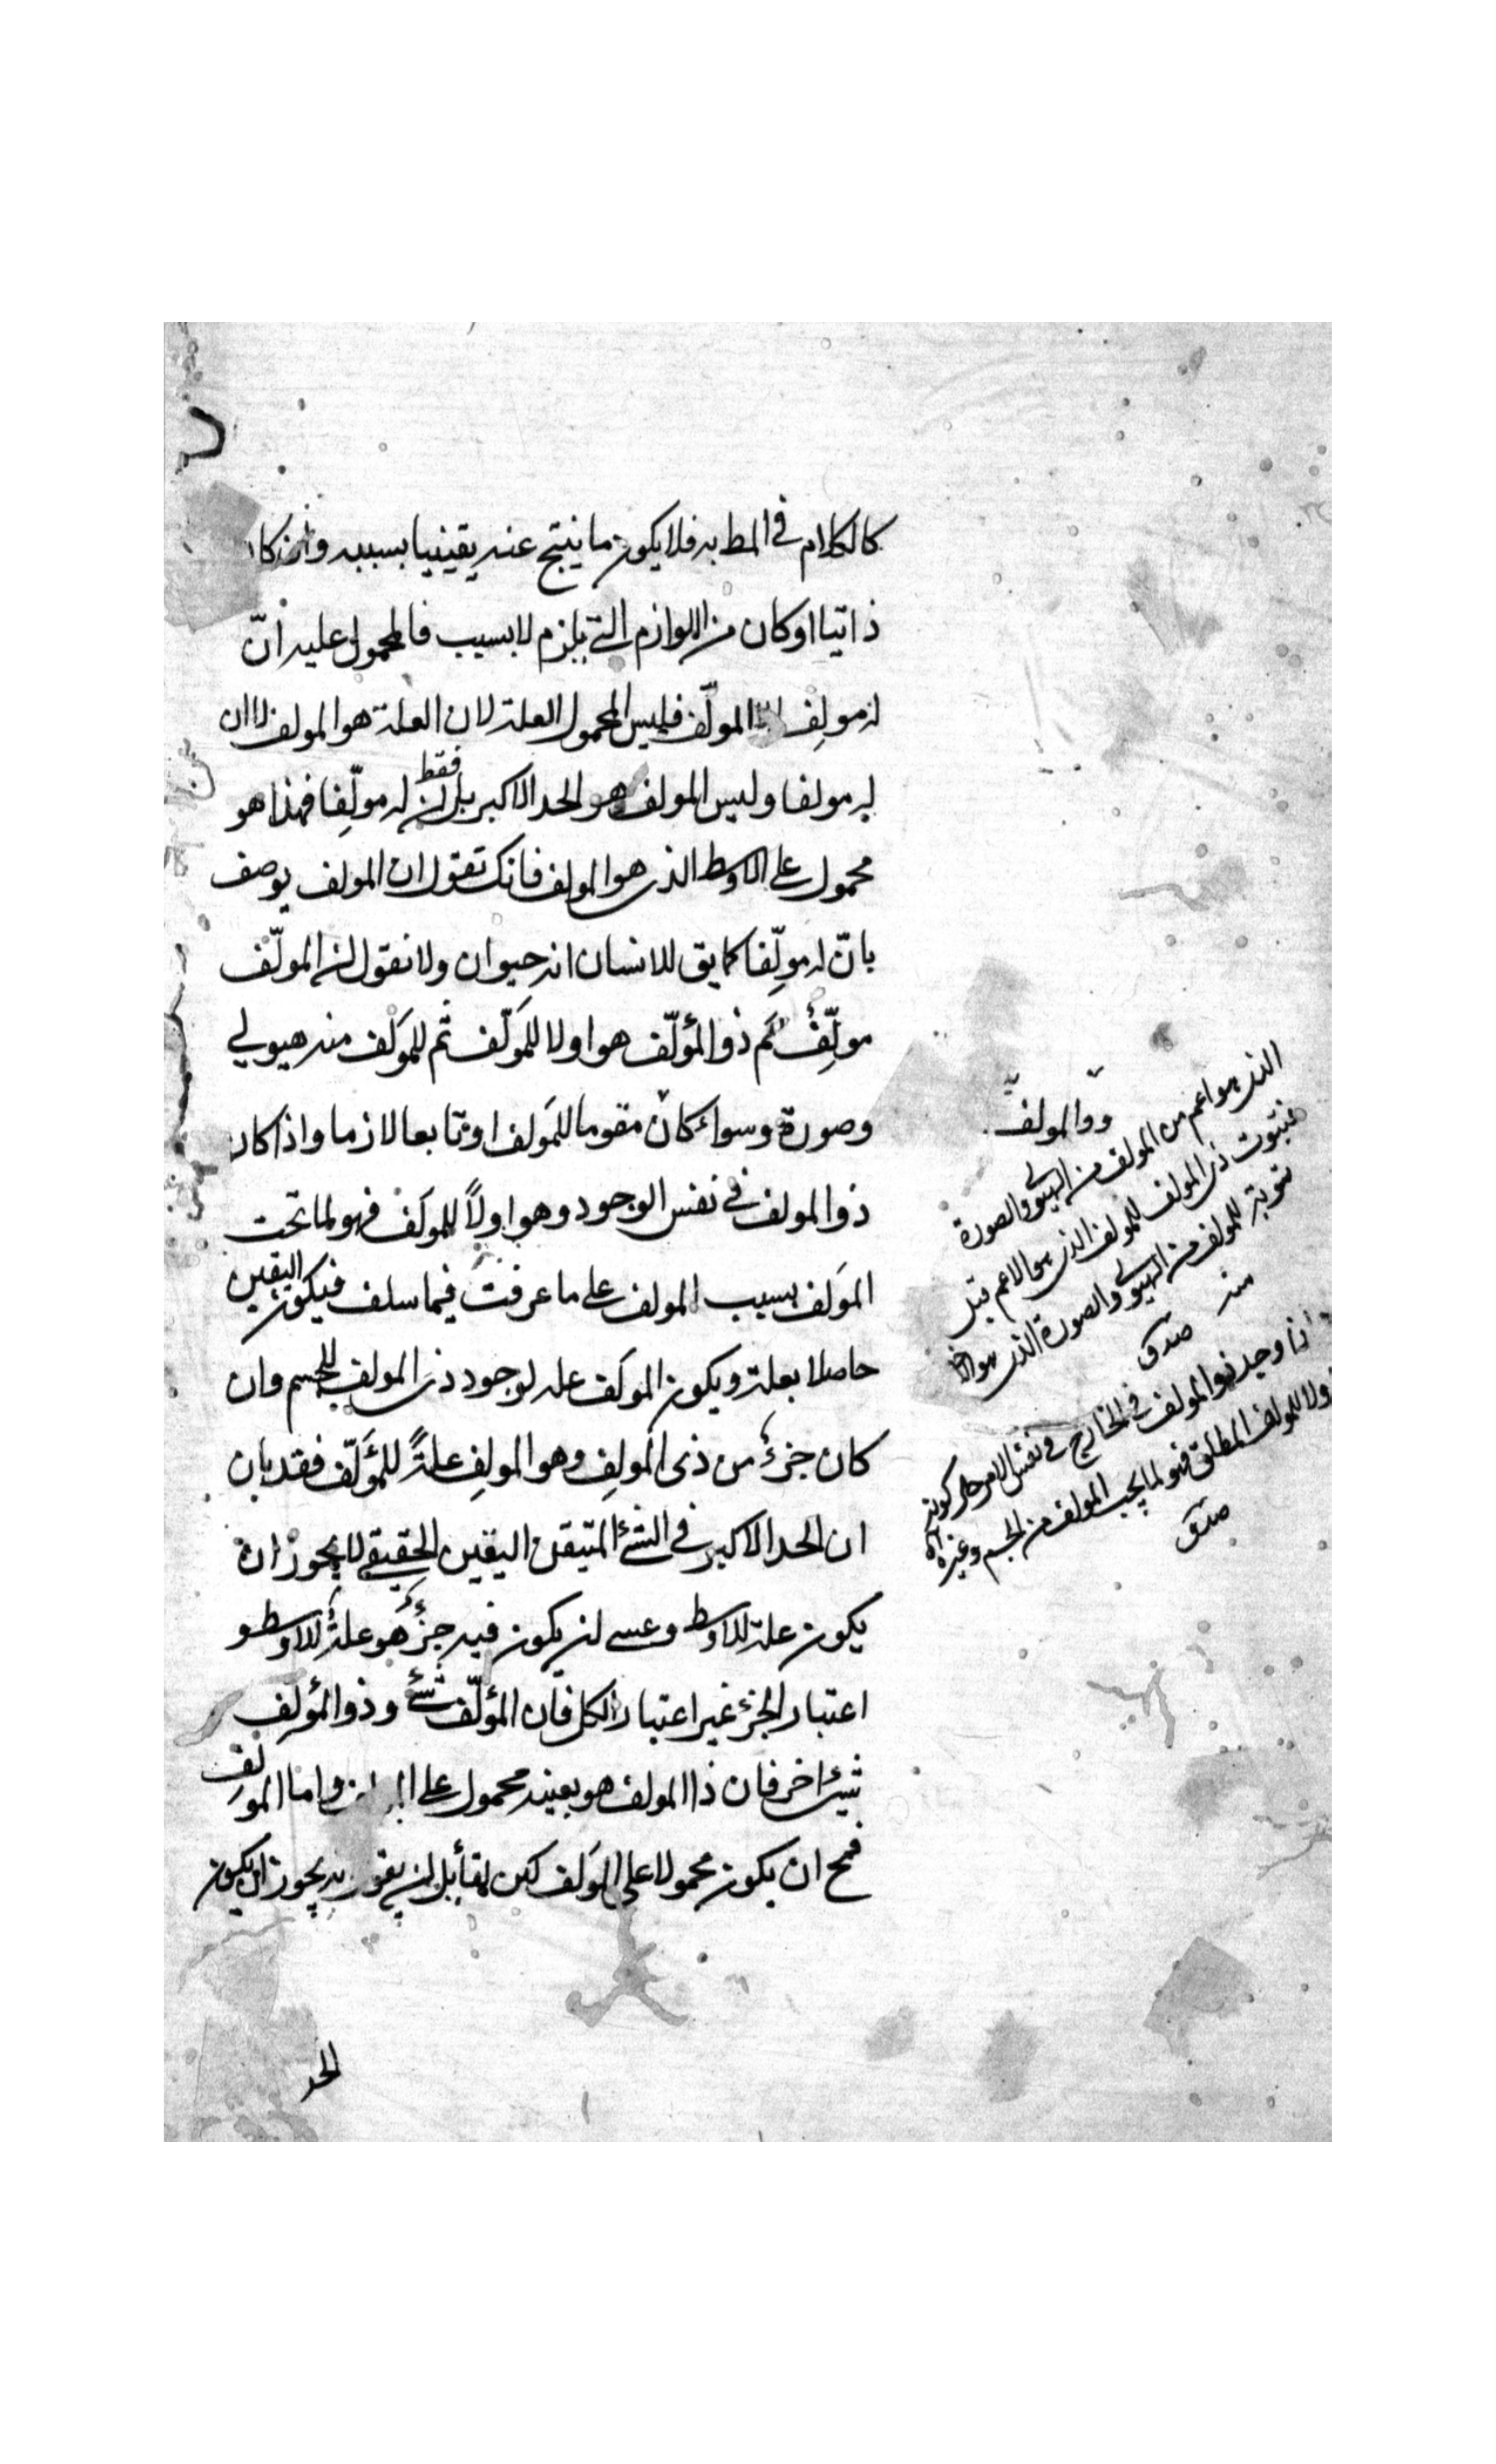 كالكلام في المط به فلا يكون ما ينتج عنه يقينيا بسببه وان كا
ذاتيا او كان من اللوازم التي يلزم لا بسبب فالمحمول عليه انّ
له مولِف المولّف فليس المحمول العلة لان العلة هو المولف لا ان
له مولفا وليس المولف هو الحد الاكبر بل ان فقط له مولّفا فهذا هو
محمول على الاوسط الذى هو المولف فانك تقول ان المولف يوصف
بانّ له مولِّفا كما يق للانسان انه حيوان ولا نقول ان المولّف
مولِّفٌ ثم ذو المؤلّف هو اولا للمَولّف ثم للموَلف منه هيولي
وصورة وسواء كان مقوما للمَولف او تابعا لازما واذا كان
ذو المولف في نفس الوجود وهو اولاً للموَلف فهو لما تحت
الموَلف بسبب المولف على ما عرفت فيما سلف فيكون اليقين
حاصلا بعلة ويكون الموَلف علة لوجود ذى المولف للجسم وان
كان جزءٌ من ذى المولِف وهو المولِف علةً للمؤَلّف فقد بان
ان الحد الاكبر في الشئ المتيقن اليقين الحقيقي لا يجوز ان
يكون علة للاوسط وعسى ان يكون فيه جزءٌ هو علةٌ للاوسط و
اعتبار الجزء غير اعتبار الكل فان المؤلّف شئ وذو المؤلِف
شيئ اخر فان ذا المولف هو بعينه محمول على واما المولف
فمح ان يكون محمولا على الموَلف لكن لقائل ان يقول انه يجوز ان يكون
الحد
ذو المولف
الذى هو اعم من المولف من الهيولى والصورة
فثبوت ذى المولف للمولف الذى هو الاعم قبل
ثبوته للمولف من الهيولى والصورة الذى هو اخص
منه صدق
اذا وجد ذو المولف في الخارج في نفس الامر حال كونه
اولا للمولف المطلق فهو لما تحت المولف من الجسم وغيره اه
صدق